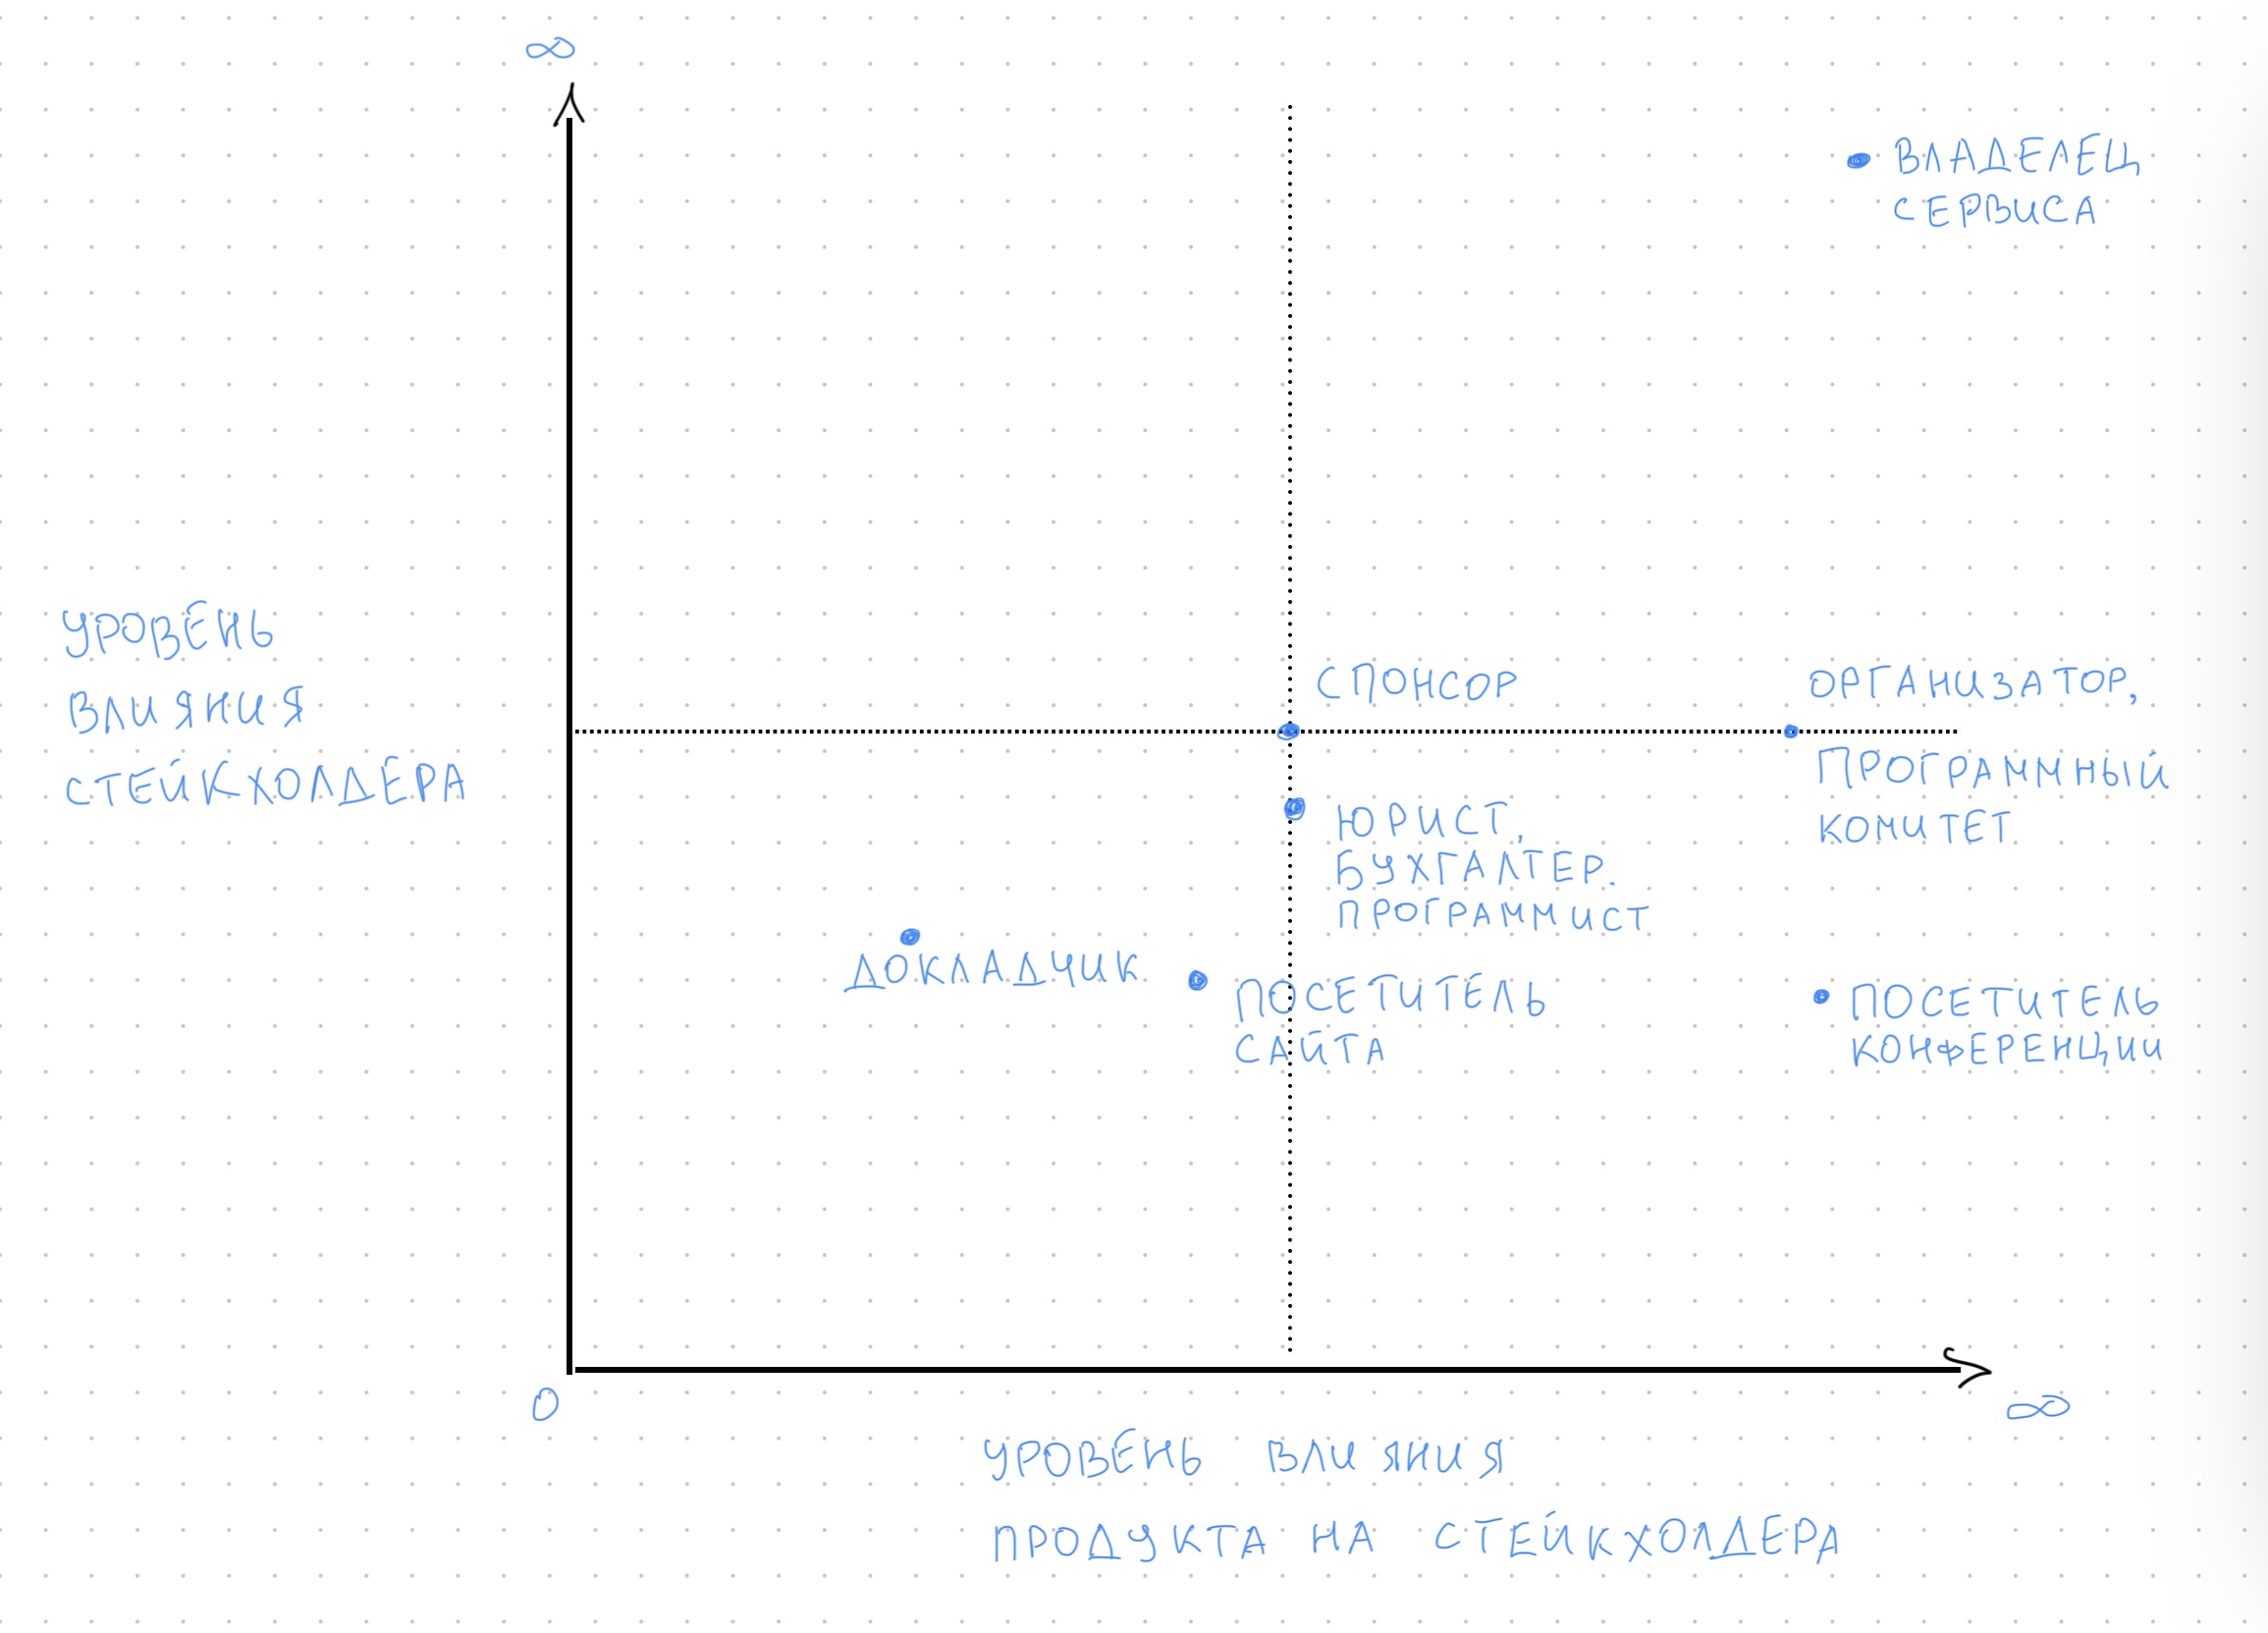 ∞
ВЛАДЕЛЕЦ
СЕРВИСА
УРОВЕНЬ
ВЛИЯНИЯ
СТЕЙКХОЛДЕРА
СПОНСОР
ОРГАНИЗАТОР,
ПРОГРАММНЫЙ
КОМИТЕТ
ЮРИСТ,
БУХГАЛТЕР.
ПРОГРАММИСТ
ДОКЛАДЧИК
ПОСЕТИТЕЛЬ
САЙТА
ПОСЕТИТЕЛЬ
КОНФЕРЕНЦИИ
0
∞
УРОВЕНЬ ВЛИЯНИЯ
ПРОДУКТА НА СТЕЙКХОЛДЕРА